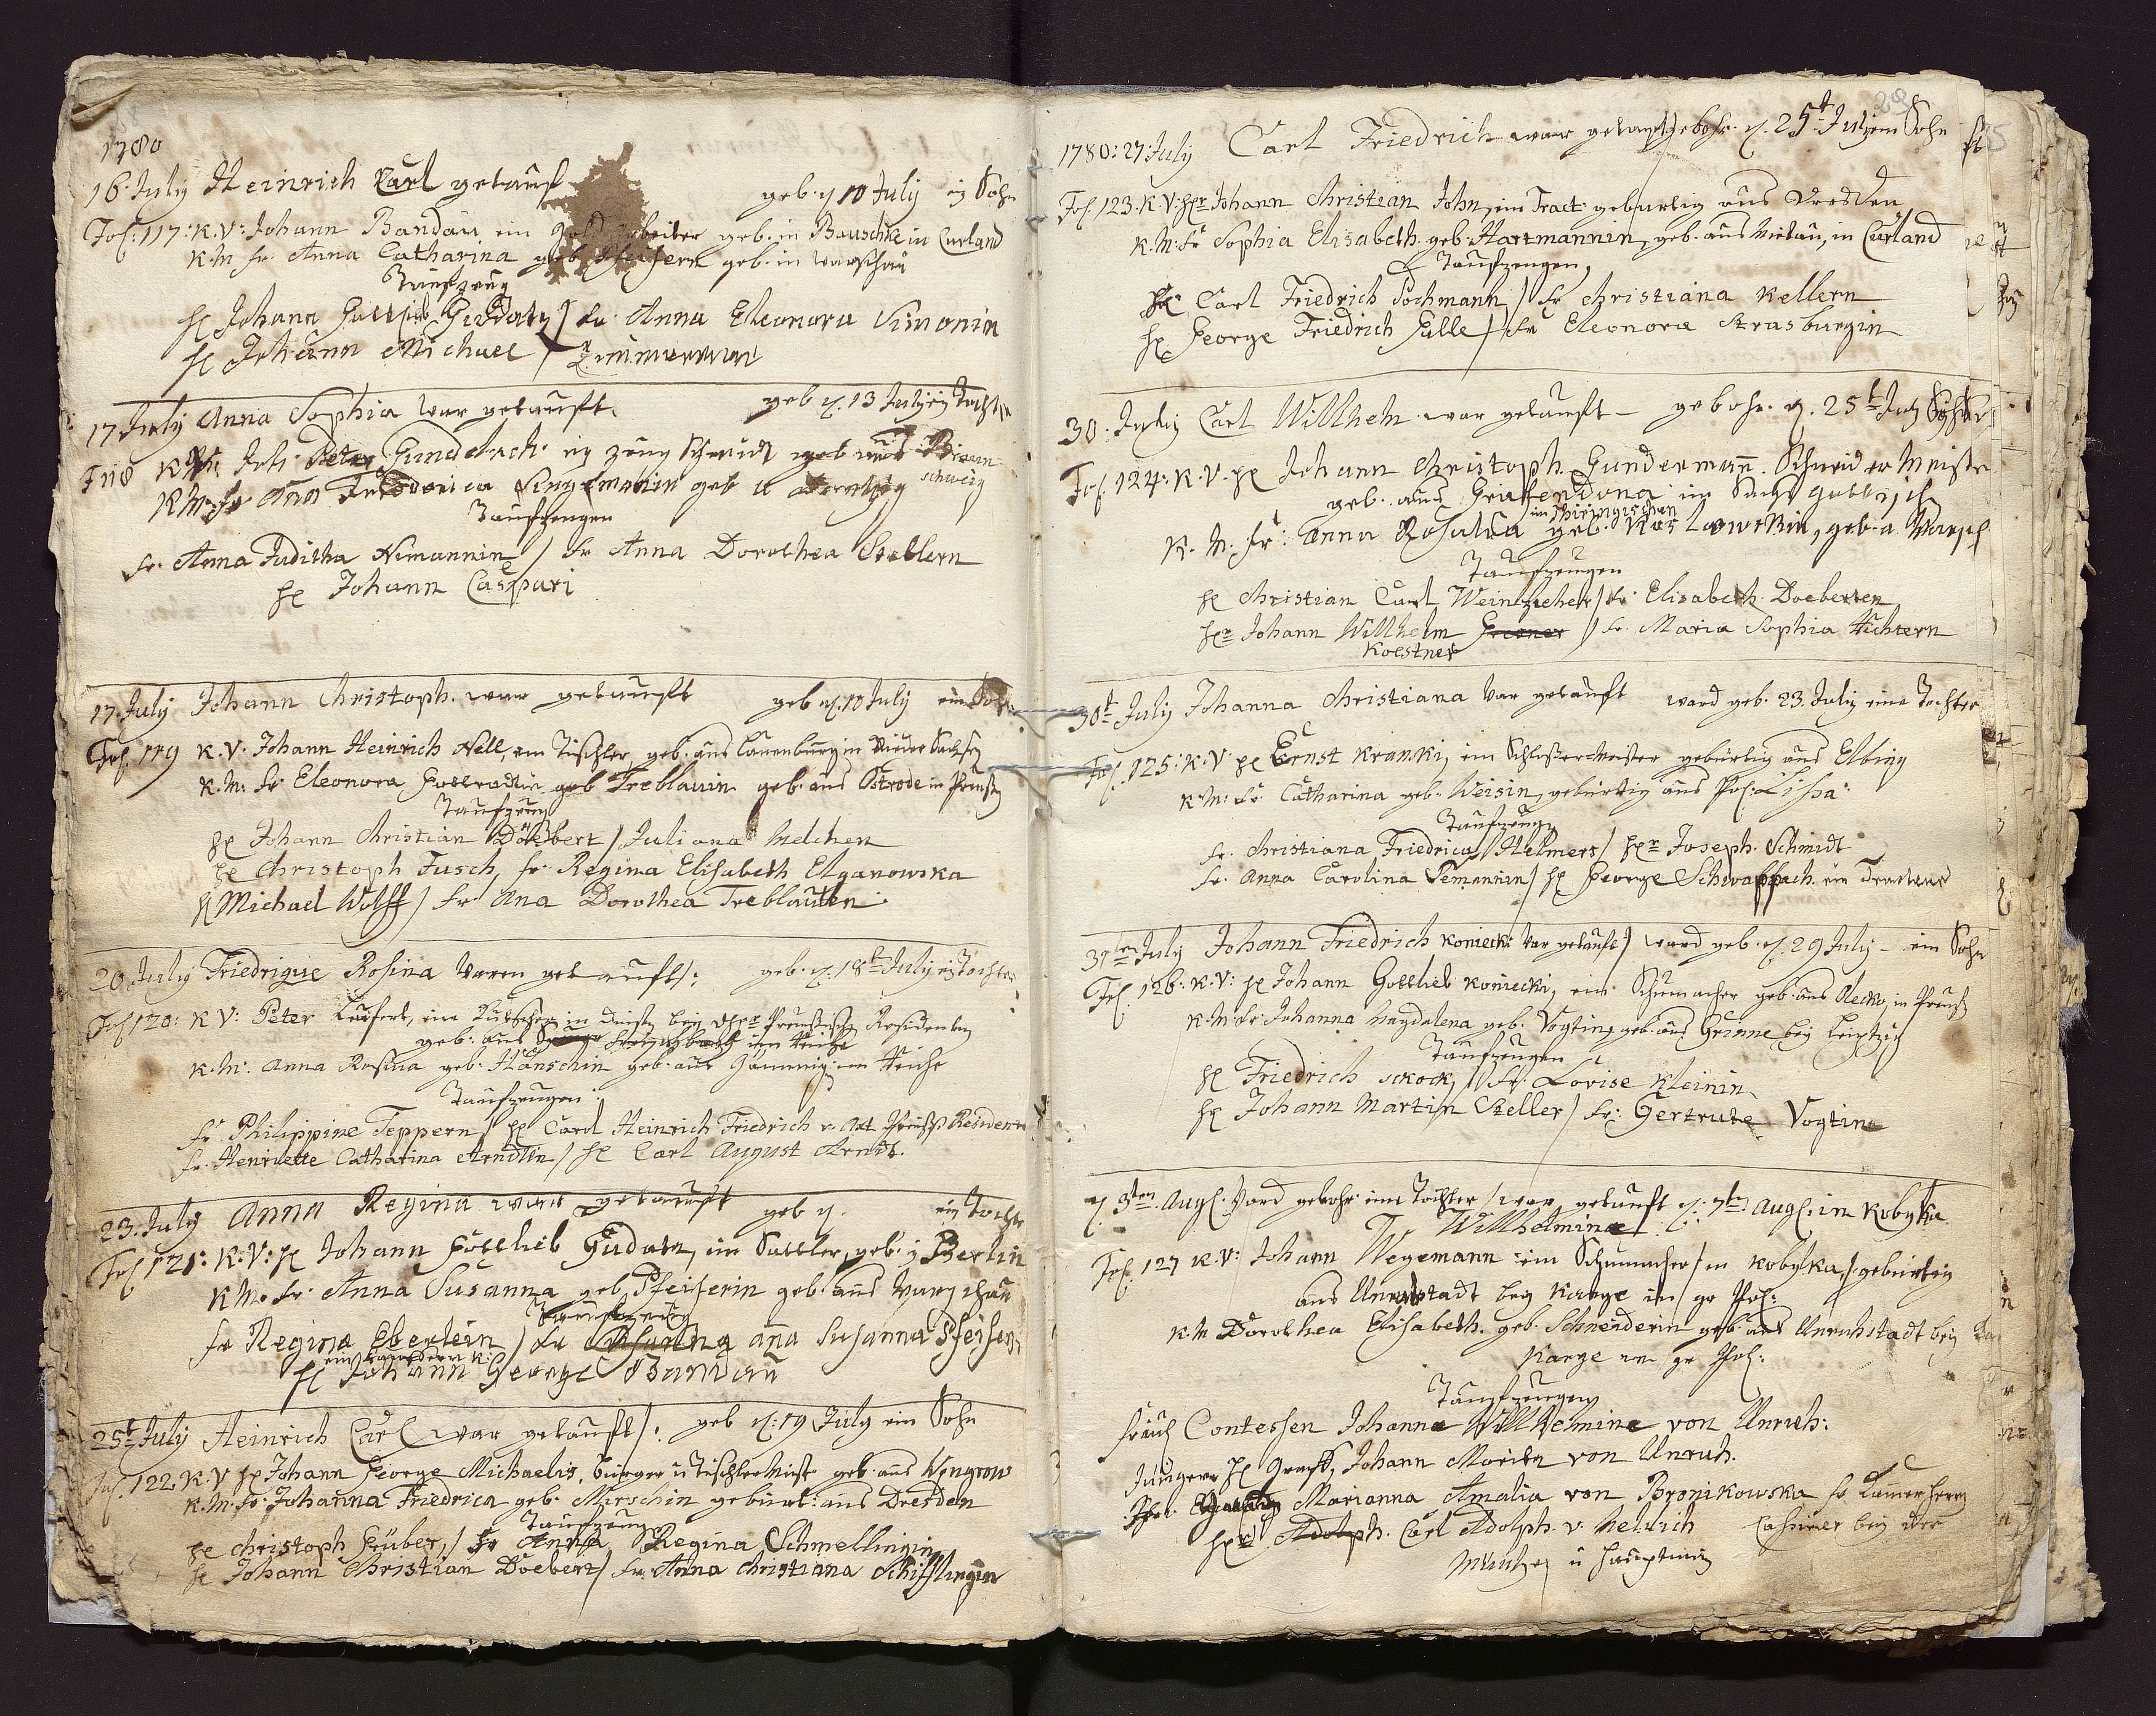 1780
16. July Heinrich Carl getauft geb. d. 10 July ein Sohn
Fol: 117: K.V: Johann Bandau ein Gold Arbeiter geb. in Bauschke in Curland
K.M fr. Anna Catharina geb. Pfeifern geb. in Warschau
Taufzeug
H Johann Gottlieb Gudatz / fr. Anna Eleonora Simonin
H Johann Michael / Zimmerman
17 July Anna Sophia war getauft. geb d. 13 July ein Tochter
F 118 K.V. Joh: Peter Gundelach ein Zeug Schmidt geb aus Braun
schweig
K M. fr Ana Friederica geb
Taufzeugen
fr. Anna Juditha Nimannin / fr Anna Dorothea Stellern
H Johann Caspari
17. July Johann Christoph. war getauft geb d. 10 July ein Sohn
Fol. 119 K.V. Johann Heinrich Nell, ein Tischler, geb. aus Lauenburg in Nieder Sachsen
K.M: fr Eleonora geb Treblauin geb. aus Ostrode in Preußen
Taufzeugen
H Johann Christian Doebert / Juliana Melchen
H Christoph Jusch, fr. Regina Elisabeth Elganowska
H Michael Wolff / fr Ana Dorothea Treblauten.
20 July Friedrique Rosina waren getauft /: geb. d. 18t July ein Tochter
Fol 120: K V: Peter Leufert, ein Kutscher in dinsten bey Preusischen Residenten
geb: aus im Reiche
K.M: Anna Rosina geb. Hänschin geb. aus im Reiche
Taufzeugen:
fr Philippine Teppern / H Carl Heinrich Friedrich v. Axt Preuss Resident
fr. Henriette Catharina Arndtin / H Carl August Arndt.
23. July Anna Regina war getauft geb d. ein Tochter
Fol 121: K.V: H Johann Gottlieb Gudatz, ein Sattler, geb. in Berlin
K M. fr. Anna Susanna geb. Pfeiferin geb. aus Warschau
Taufzeug
fr Regina Eberlein / fr ana Susanna Pfeifern
H Johann George Bandau
25t July Heinrich Carl war getauft /: geb d: 19 July ein Sohn
Fol. 122 K.V H Johann George Michaelis, Bürger u Tischler Meistr geb. aus Wengrow
K.M. fr. Johanna Friedrica geb. Mirschin gebürt: aus Dresden
Taufzeug
H Christoph Grüber, / fr Anna Regina Schmellingin
H Johann Christian Doebert / fr. Anna Christiana Schifflingin
29
1780: 27 July Carl Friedrich war getauft / gebohr. d. 25t July ein Sohn
Fol. 123. K.V: Hr Johann Christian John, ein Tract: gebürtig aus Dresden
K.M. fr Sophia Elisabeth geb. Hartmannin, geb. aus Mietau, in Curland
Taufzeugen,
H Carl Friedrich Pochmann / fr Christiana Kellern
H George Friedrich Hille / fr Eleonora Strasburgin
30. July Carl Willhelm war getauft – gebohr. d. 25t July
Fol. 124: K.V. H Johann Christoph Gundermann. Schneider Meister
geb. aus Gräfendona im Sachs Gottischen
im Thiringischen
K. M. fr: Anna Rosalia geb. Koslowskin, geb. a Warsch
Taufzeugen
H Christian Carl Weintzieher / fr. Elisabeth Doeberten
Hr Johann Willhelm / fr. Maria Sophia Richtern
Koestner
30t July Johanna Christiana war getauft ward geb. 23. July eine Tochter
Fol. 125: K.V H Ernst Kranki, ein Schloßer-Meister gebürtig aus Elbing
K.M: fr. Catharina geb. Weisin, gebürtig aus Pol: Lissa.
Taufzeug
fr. Christiana Friedrica Helmers / Hr Joseph. Schmidt
fr. Anna Carolina Pemannin / H George Schwappach ein Tracteur
31ten July Johann Friedrich Koniecki war getauft / ward geb. d. 29 July – ein Sohn
Fol. 126: K.V: H Johann Gottlieb Koniecki, ein Schumacher geb. aus Olecko, in Preuß
K.M: fr. Johanna Magdalena geb. Vogtin geb. aus Grimme bey Leiptzig
Taufzeugen
H Friedrich Sckock, / fr. Lovise Kleinin
H Johann Martin Steller / fr: Gertrute Vogtin
d. 3ten Aug. ward gebohr. eine Tochter / war getauft d. 7ten Aug. in Kobyłka
Willhelmina
Fol. 127 K.V: Johann Wegemann ein Schumacher / in Kobylka / gebürtig
aus Unrustadt bey Karge in gr Pol:
K.M Dorothea Elisabeth. geb. Schneiderin geb. aus Unruhstadt bey
Karge in gr Pol:
Taufzeugen
Contessen Johanna Willhelmina von Unruh:
Jungerr H Graff, Johann Moritz von Unruh.
Marianna Amalia von Bronikowska fr Camerherrn
Hr Adolph. Carl Adolph. v. Helwich Casirer bey der
Müntze u Hauptman